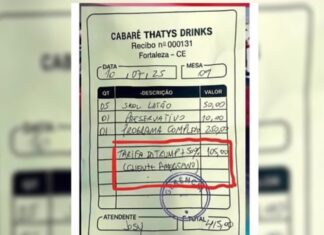 CABARÉ THATYS DRINKS
Recibo nº 000131
Fortaleza - CE
DATA MESA
10, 07, 25 09
QT -DESCRIÇÃO- VALOR
05 SKOL LATÃO 50,00
01 PRESERVATIVO 10,00
01 PROGRAMA COMPLETO 250,00
TARIFA DO TRUMP + 50% 105,00
(CLIENTE AMERICANO)
ATENDENTE TOTAL
JOSY 415,00